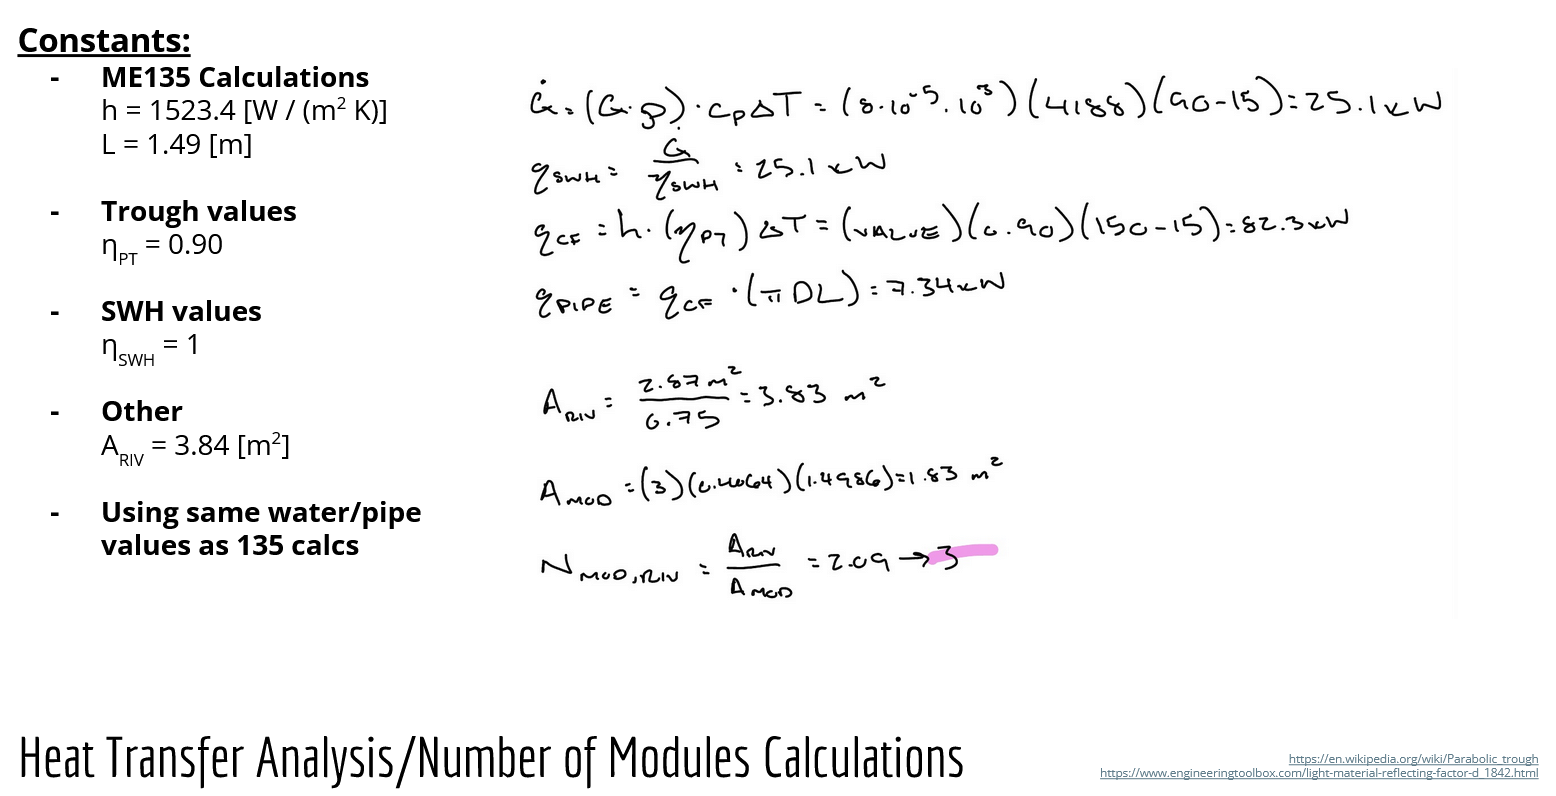 Constants:
- ME135 Calculations
h = 1523.4 [W / (m² K)]
L = 1.49 [m]
- Trough values
η_PT = 0.90
- SWH values
η_SWH = 1
- Other
A_RIV = 3.84 [m²]
- Using same water/pipe
values as 135 calcs
Ġ = (G·ρ)·c_pΔT = (8·10⁻⁵·10³)(4188)(90-15) = 25.1 kW
q_SWH = Ġ/η_SWH = 25.1 kW
q_CF = h·(η_PT)ΔT = (VALUE)(0.90)(150-15) = 82.3 kW
q_PIPE = q_CF·(πDL) = 7.34 kW
A_RIV = 2.87 m²/0.75 = 3.83 m²
A_MOD = (3)(0.4064)(1.4986) = 1.83 m²
N_MOD,RIV = A_RIV/A_MOD = 2.09 → 3
Heat Transfer Analysis/Number of Modules Calculations
https://en.wikipedia.org/wiki/Parabolic_trough
https://www.engineeringtoolbox.com/light-material-reflecting-factor-d_1842.html